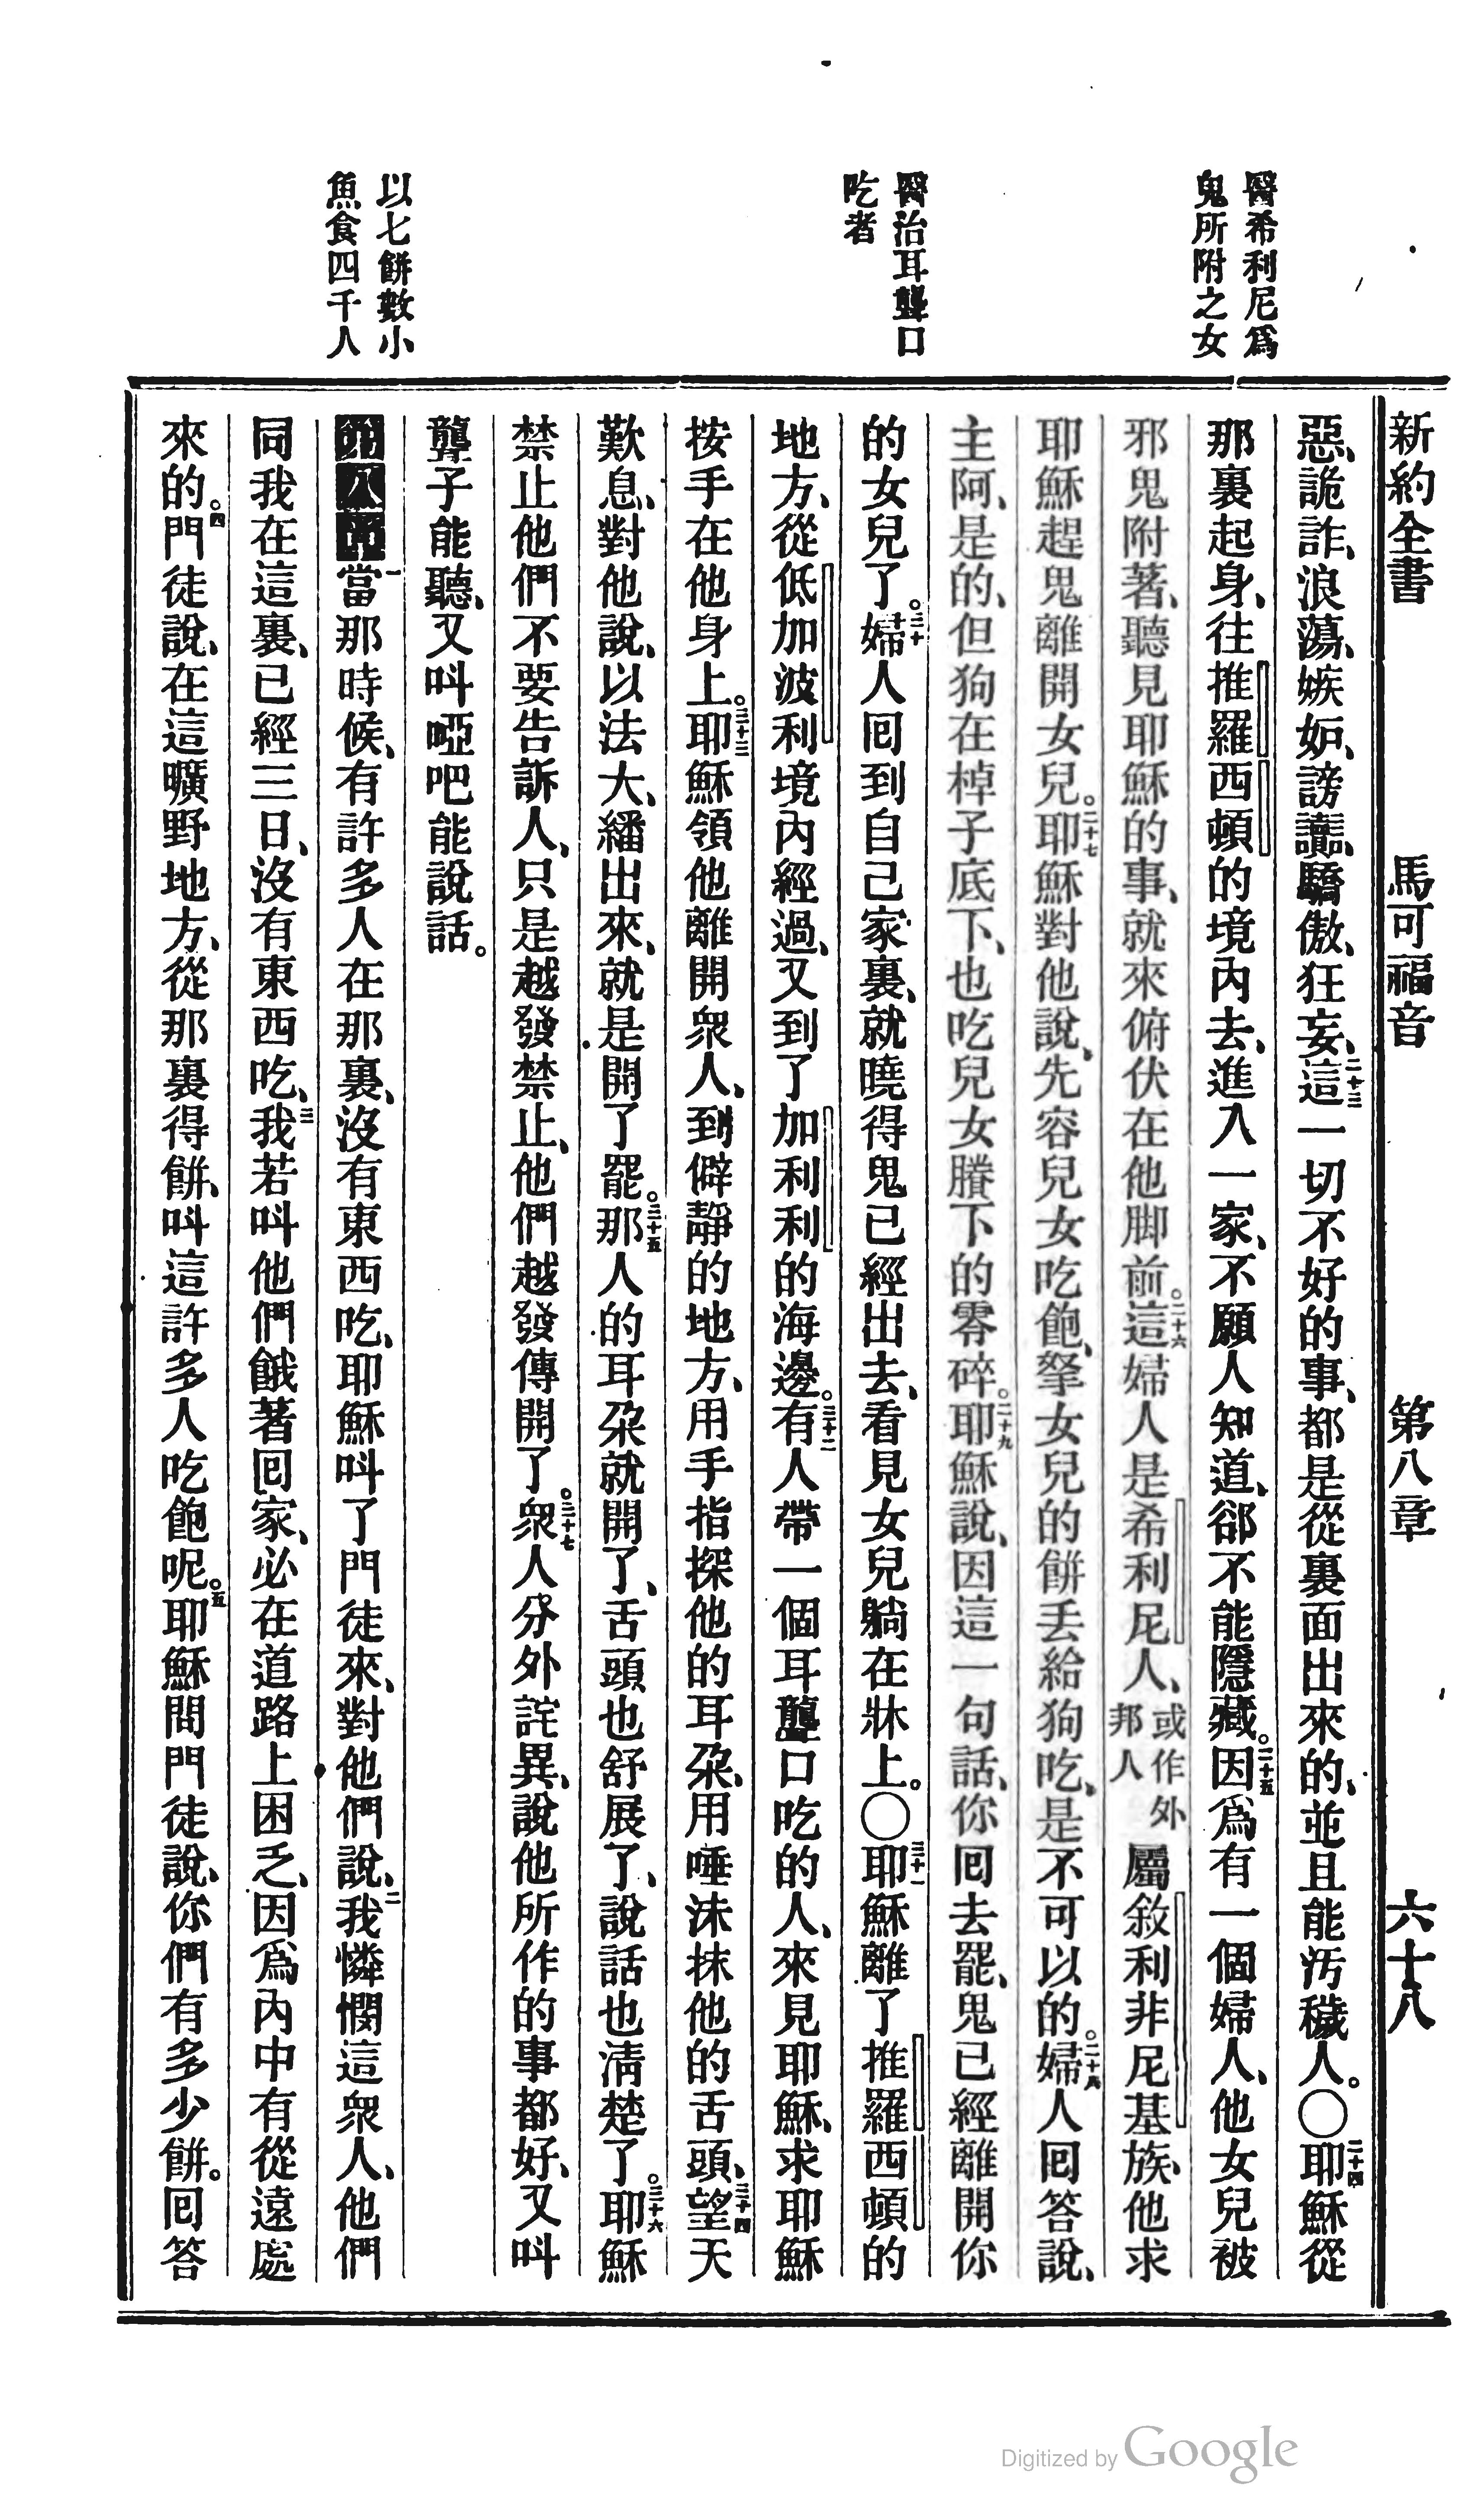 新約全書 馬可福音 第八章 六十八
醫希利尼爲
鬼所附之女
醫治耳聾口
吃者
以七餅數小
魚食四千人
惡、詭詐、浪蕩、嫉妬、謗讟、驕傲、狂妄、二十三這一切不好的事、都是從裏面出來的、並且能汚穢人。〇二十四耶穌從
那裏起身、往推羅西頓的境內去、進入一家、不願人知道、郤不能隱藏。二十五因爲有一個婦人、他女兒被
邪鬼附著、聽見耶穌的事、就來俯伏在他脚前。二十六這婦人是希利尼人、或作外邦人屬敘利非尼基族、他求
耶穌趕鬼離開女兒。二十七耶穌對他說、先容兒女吃飽、拏女兒的餅丢給狗吃、是不可以的。二十八婦人囘答說、
主阿、是的、但狗在棹子底下、也吃兒女賸下的零碎。二十九耶穌說、因這一句話、你囘去罷、鬼已經離開你
的女兒了。三十婦人囘到自己家裏、就曉得鬼已經出去、看見女兒躺在牀上。〇三十一耶穌離了推羅西頓的
地方、從低加波利境內經過、又到了加利利的海邊。三十二有人帶一個耳聾口吃的人、來見耶穌、求耶穌
按手在他身上。三十三耶穌領他離開衆人、到僻靜的地方、用手指探他的耳朶、用唾沫抹他的舌頭、三十四望天
歎息、對他說、以法大、繙出來、就是開了罷。三十五那人的耳朶就開了、舌頭也舒展了、說話也淸楚了。三十六耶穌
禁止他們不要告訴人、只是越發禁止、他們越發傳開了。三十七衆人分外詫異、說他所作的事都好、又呌
聾子能聽、又呌啞吧能說話。
第八章一當那時候、有許多人在那裏、沒有東西吃、耶穌呌了門徒來、對他們說、二我憐憫這衆人、他們
同我在這裏、已經三日、沒有東西吃、三我若呌他們餓著囘家、必在道路上困乏、因爲內中有從遠處
來的。四門徒說、在這曠野地方、從那裏得餅、呌這許多人吃飽呢。五耶穌問門徒說、你們有多少餅。囘答
Digitized by Google